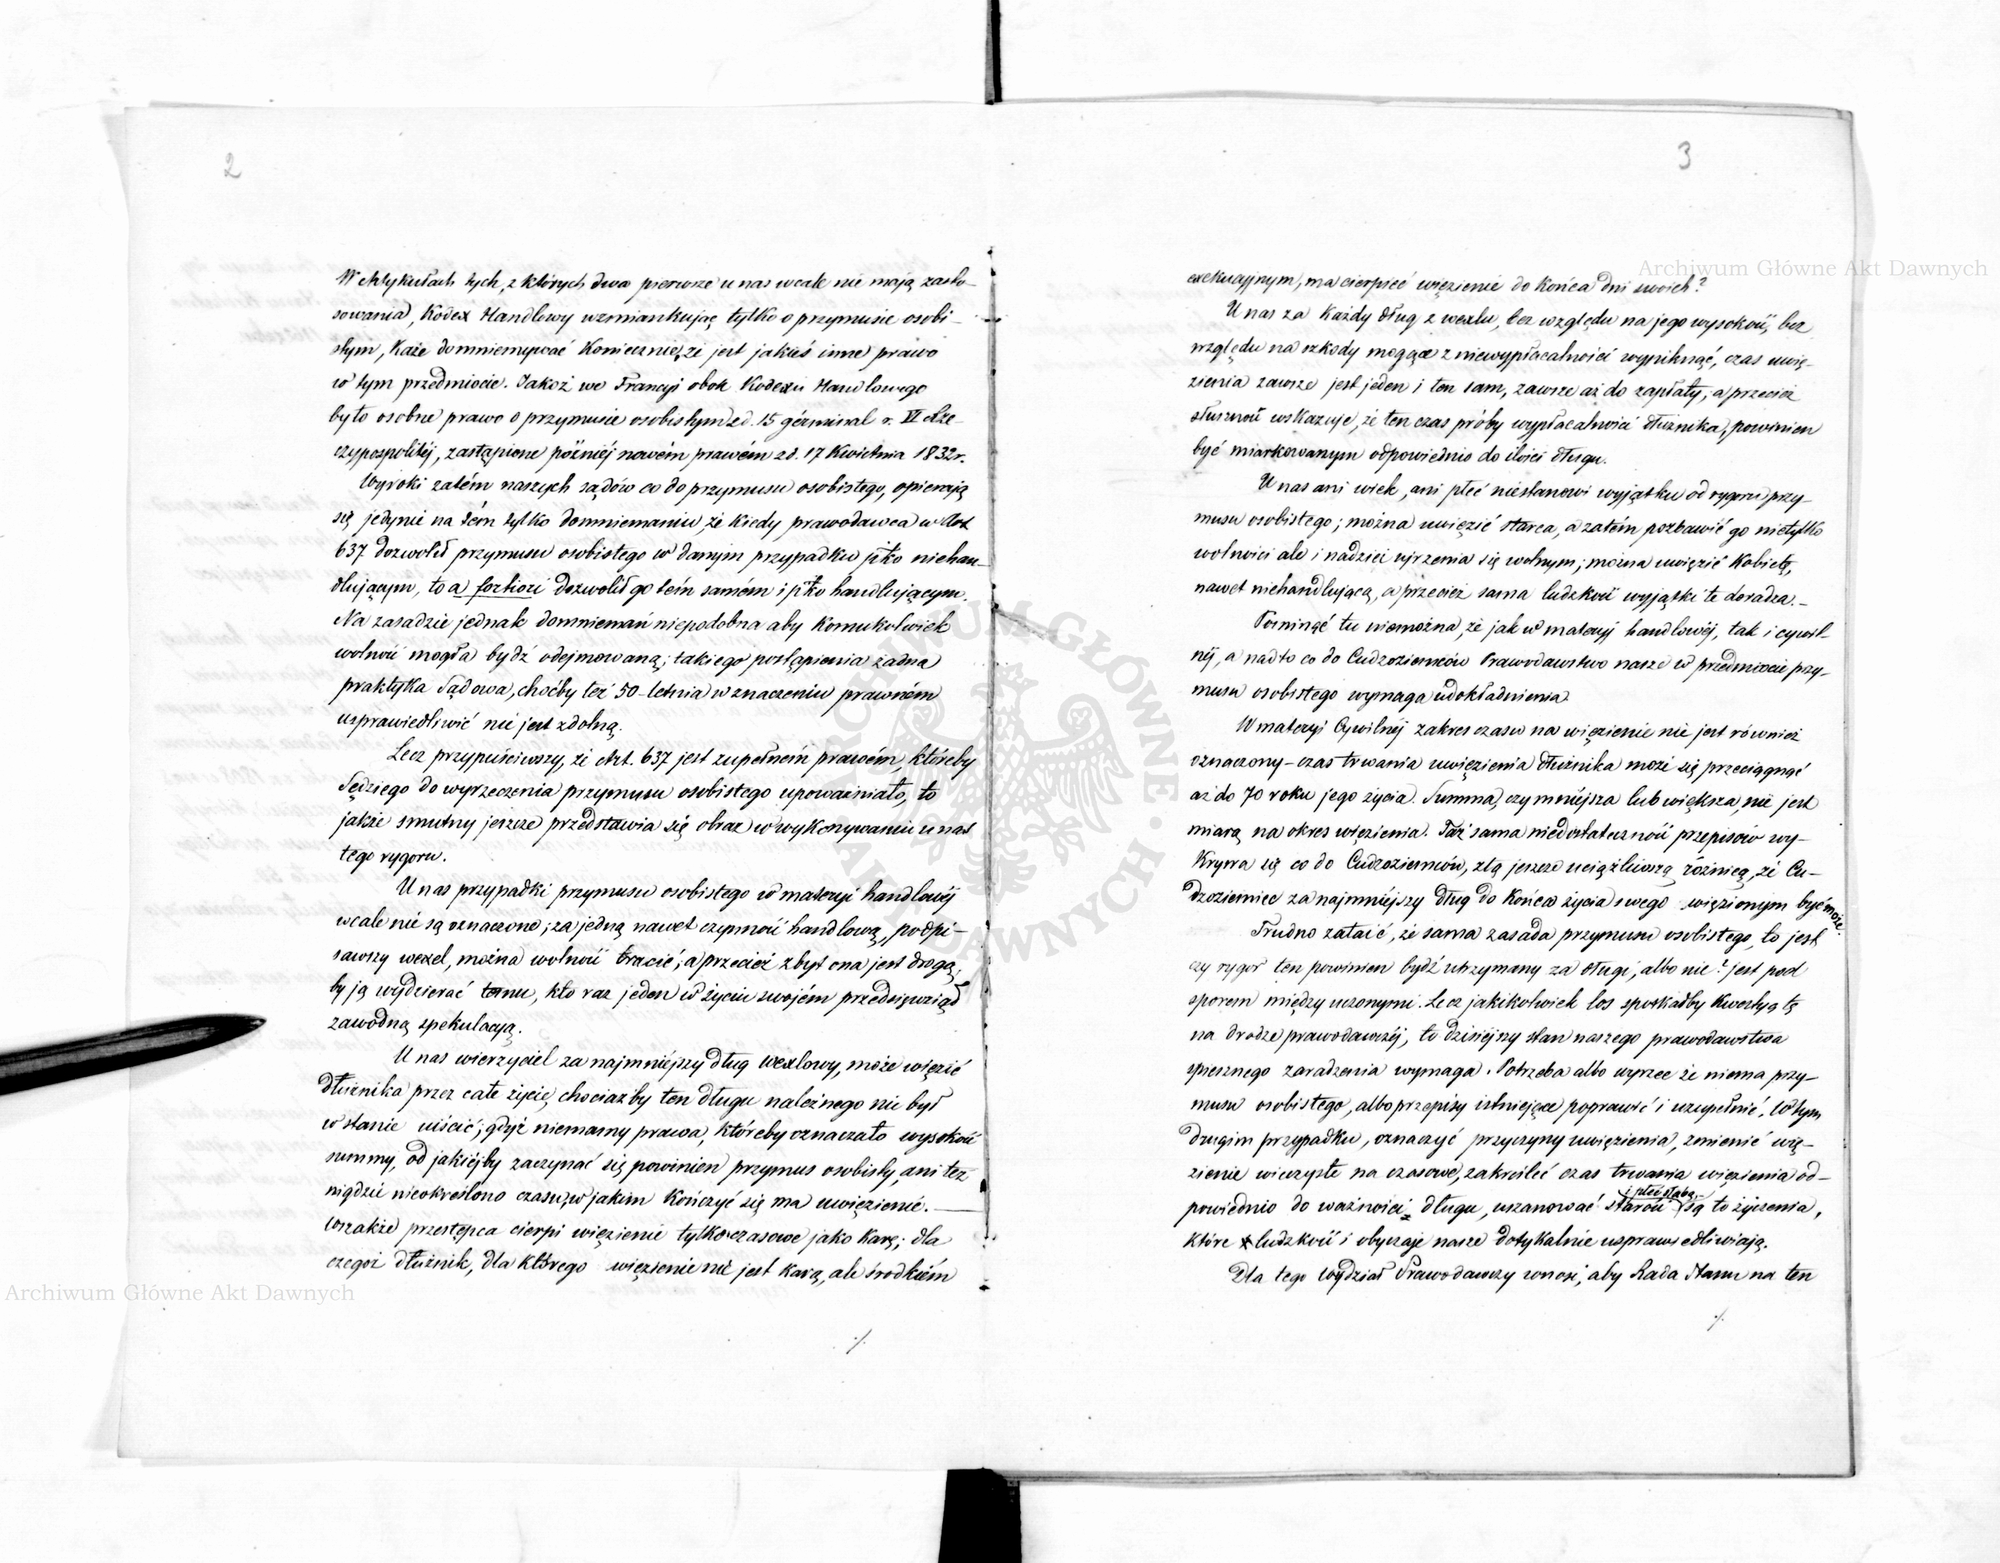 2
W Artykułach tych, z których dwa pierwsze u nas wcale nie mają zasto-
sowania, Kodex Handlowy wzmiankując tylko o przymusie osobi-
stym, każe domniemywać koniecznie, że jest jakieś inne prawo
w tym przedmiocie. Jakoż we Francyi obok Kodexu Handlowego
było osobne prawo o przymusie osobistym z d. 15 germinal r. VI Rze-
czypospolitéj, zastąpione późniéj nowém prawem z d. 17 Kwietnia 1832 r.
Wyroki zatém naszych sądów co do przymusu osobistego, opierają
się jedynie na tém tylko domniemaniu, że kiedy prawodawca w Art
637 dozwolił przymusu osobistego w danym przypadku p̄ko niehan-
dlującym, to a fortiori dozwolił go tém samém i p̄ko handlującym.
Na zasadzie jednak domniemań niepodobna aby komukolwiek
wolność mogła bydź odejmowaną; takiego postąpienia żadna
praktyka Sądowa, choćby też 50-letnia w znaczeniu prawném
usprawiedliwić nie jest zdolną.
Lecz przypuściwszy, że Art. 637 jest zupełném prawém, któreby
Sędziego do wyrzeczenia przymusu osobistego upoważniało, to
jakże smutny jeszcze przedstawia się obraz w wykonywaniu u nas
tego rygoru.
U nas przypadki przymusu osobistego w materyi handlowéj
wcale nie są oznaczone; za jedną nawet czynność handlową, podpi-
sawszy wexel, można wolność tracić; a przecież zbyt ona jest drogą,
by ją wydzierać temu, kto raz jeden w życiu swojém przedsięwziął
zawodną spekulacyą.
U nas wierzyciel za najmniejszy dług wexlowy, może więzić
dłużnika przez całe życie, chociażby ten długu należnego nie był
w stanie uiścić; gdyż niemamy prawa, któreby oznaczało wysokość
summy, od jakiéjby zaczynać się powinien przymus osobisty, ani też
nigdzie nieokreślono czasu, w jakim kończyć się ma uwięzienie.
Wszakże przestępca cierpi więzienie tylko czasowe jako karę; dla
czegoż dłużnik, dla którego więzienie nie jest karą, ale środkiém
./.
3
exekucyjnym, ma cierpieć więzienie do końca dni swoich?
U nas za każdy dług z wexlu, bez względu na jego wysokość, bez
względu na szkody mogące z niewypłacalności wyniknąć, czas uwię-
zienia zawsze jest jeden i ten sam, zawsze aż do zapłaty, a przecież
słuszność wskazuje, że ten czas próby wypłacalności dłużnika, powinien
być miarkowanym odpowiednio do ilości długu.
U nas ani wiek, ani płeć niestanowi wyjątku od rygoru przy-
musu osobistego; można uwięzić starca, a zatém pozbawić go nietylko
wolności ale i nadziei ujrzenia się wolnym; można uwięzić kobietę,
nawet niehandlującą, a przecież sama ludzkość wyjątki te doradza.-
Pominąć tu niemożna, że jak w materyi handlowéj, tak i cywil-
néj, a nadto co do Cudzoziemców Prawodawstwo nasze w przedmiocie przy-
musu osobistego wymaga udokładnienia
W materyi Cywilnéj zakres czasu na więzienie nie jest również
oznaczony - czas trwania uwięzienia dłużnika może się przeciągnąć
aż do 70 roku jego życia. Summa, czy mniejsza lub większa, nie jest
miarą na okres więzienia. Taż sama niedostateczność przepisów wy-
krywa się co do Cudzoziemców, z tą jeszcze uciążliwszą różnicą, że Cu-
dzoziemiec za najmniejszy dług do końca życia swego więzionym być może.
Trudno zataić, że sama zasada przymusu osobistego, to jest
czy rygor ten powinien bydź utrzymany za długi, albo nie? jest pod
sporem między uczonymi. Lecz jakikolwiek los spotkałby kwestyą tę
na drodze prawodawczéj, to dzisiejszy stan naszego prawodawstwa
spiesznego zaradzenia wymaga. Potrzeba albo wyrzec że niema przy-
musu osobistego, albo przepisy istniejące poprawić i uzupełnić. W tym
drugim przypadku, oznaczyć przyczyny uwięzienia, zmienić wię-
zienie wieczyste na czasowe, zakreślić czas trwania więzienia od-
powiednio do ważności długu, uszanować starość i płeć słabą - są to życzenia,
które ludzkość i obyczaje nasze dotykalnie usprawiedliwiają.
Dla tego Wydział Prawodawczy wnosi, aby Rada Stanu na ten
./.
Archiwum Główne Akt Dawnych
Archiwum Główne Akt Dawnych
ARCHIWUM GŁÓWNE · AKT DAWNYCH ·